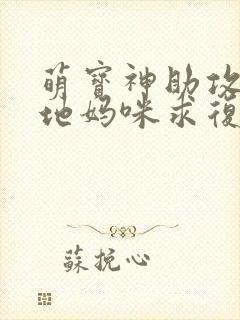 萌寶神助攻
地媽咪求復
蘇挽心